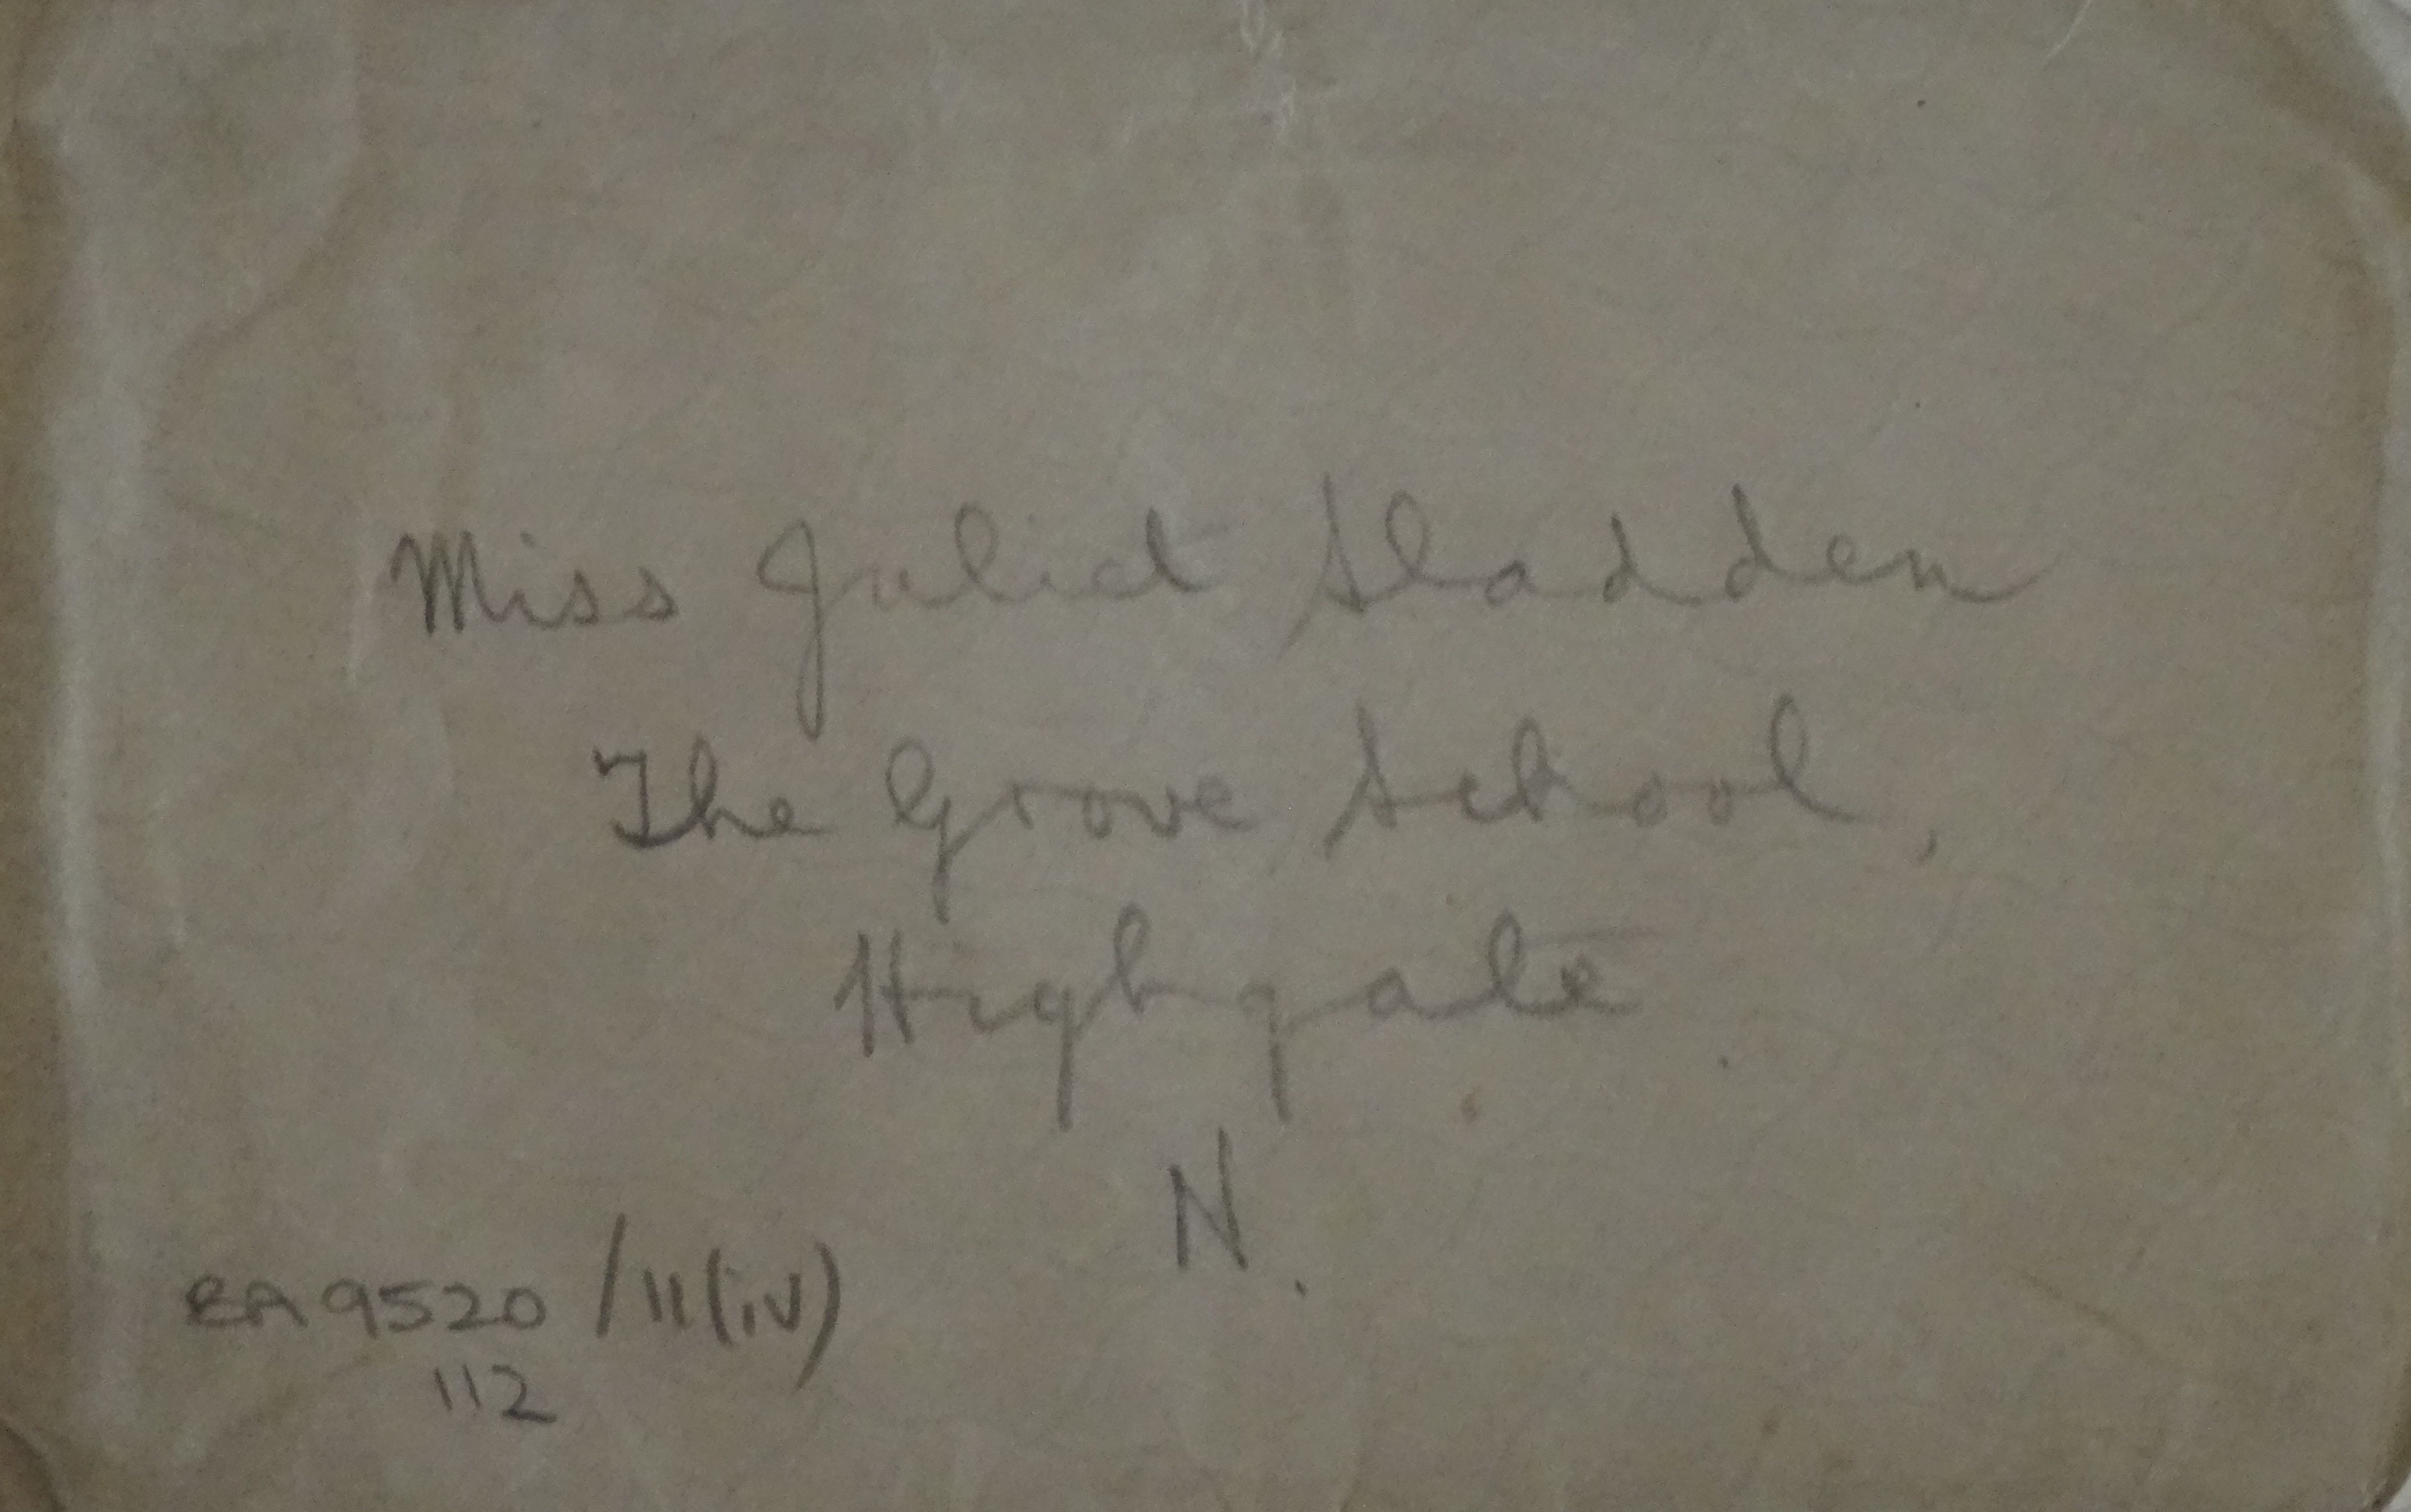 Miss Juliet Sladden
The Grove School,
Highgate
N.
EA9520/11(iv)
112